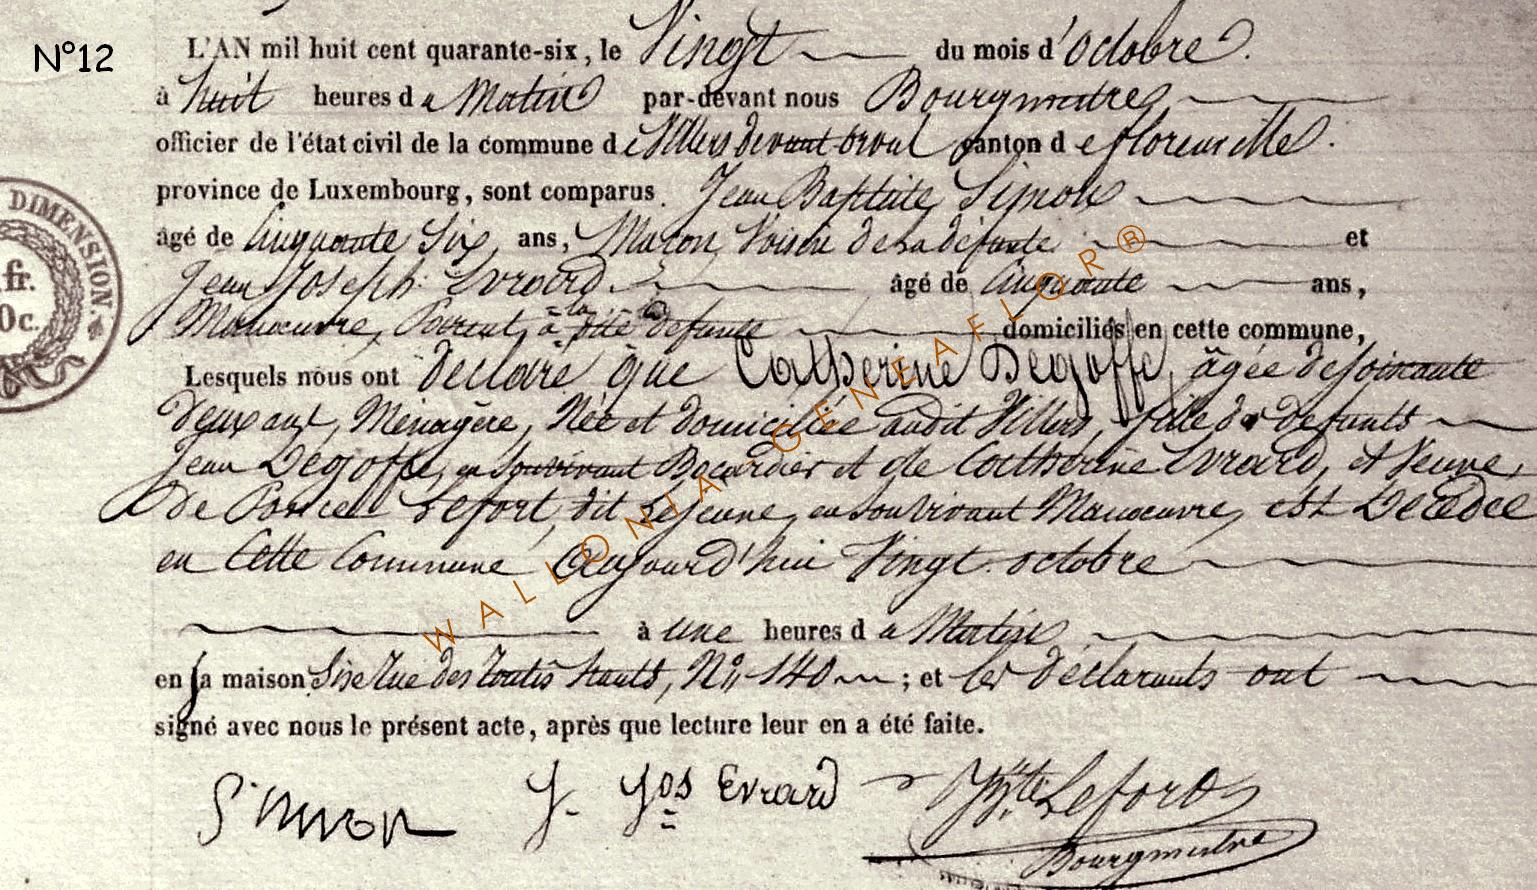 N°12
L'AN mil huit cent quarante-six, le Vingt du mois d'octobre.
à huit heures du Matin par-devant nous Bourgmestre
officier de l'état civil de la commune de Villers devant orval canton de florenville.
province de Luxembourg, sont comparus. Jean Baptiste Simon
âgé de Cinquante Six, ans, Maçon, Voisin de la défunte et
Jean Joseph Evrard âgé de Cinquante ans,
Manœuvre, Parent, à la dite défunte domiciliés en cette commune,
Lesquels nous ont déclaré que Catherine Degoffe, âgée de soixante
deux ans, Ménagère, Née et domiciliée audit Villers, fille de défunts
Jean Degoffe, en son vivant Bocardier et de Catherine Evrard, et Veuve,
De Poncel Lefort, dit Lejeune, en son vivant Manœuvre, est Décédée
en Cette Commune Aujourd'hui Vingt octobre
à une heures du Matin
en sa maison Sise Rue des hauts, N° 140 ; et les déclarants ont
signé avec nous le présent acte, après que lecture leur en a été faite.
Simon J. Jos Evrard JBte Lefort
Bourgmestre
DIMENSION.
fr.
0c.
WALLONIA-GENEAFLOR®